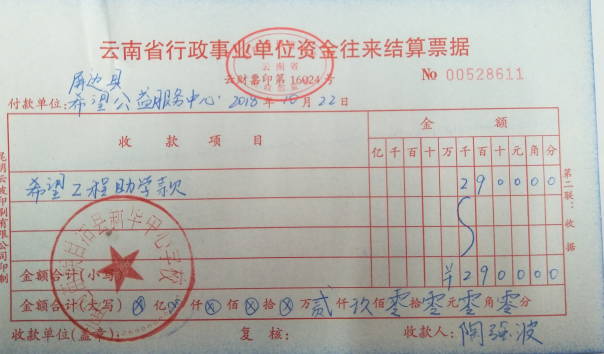 云南省行政事业单位资金往来结算票据
云南省
云财票印第16024号
№ 00528611
屏边县
付款单位:希望公益服务中心 2018年10月22日
收款项目 金额
亿千百十万千百十元角分
希望工程助学款 290000
金额合计(小写) ¥290000
金额合计(大写) ⊗亿⊗仟⊗佰⊗拾⊗万贰仟玖佰零拾零元零角零分
收款单位(盖章): 复核: 收款人:陶强波
第二联:收据